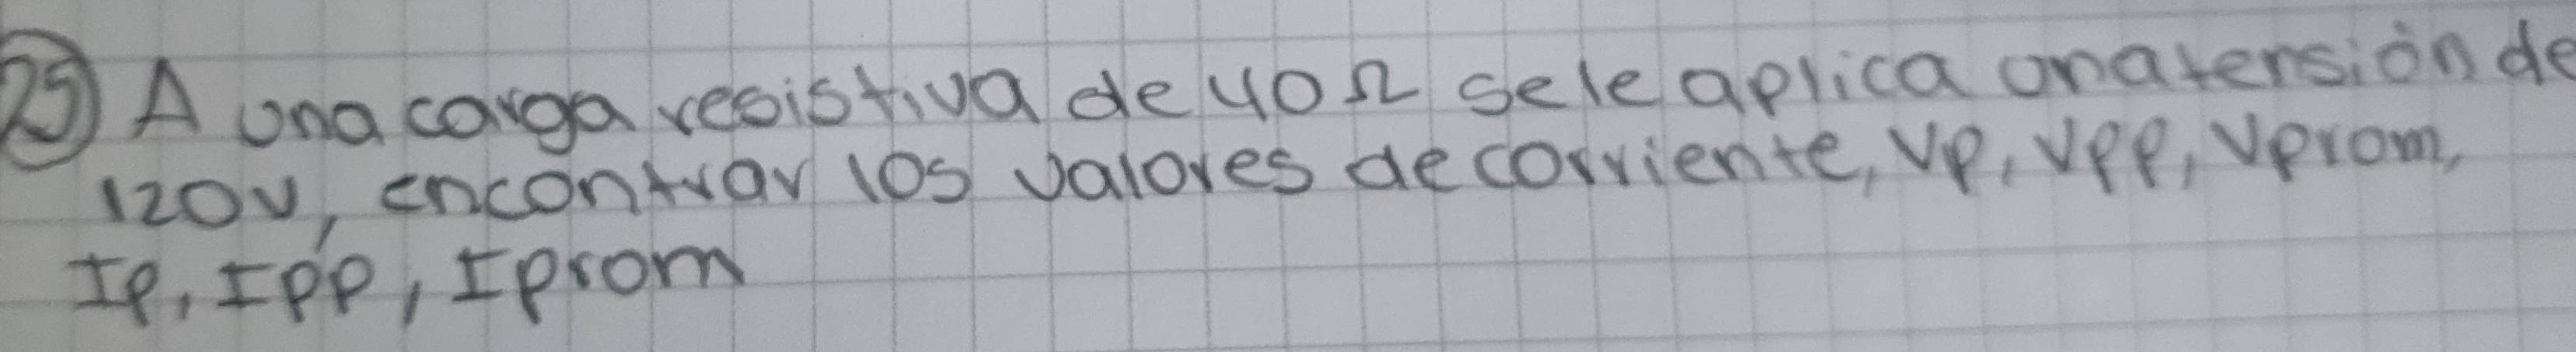 25 A una carga resistiva de 40Ω se le aplica una tensión de
120V, encontrar los valores de corriente, Vp, Vpp, Vprom,
Ip, Ipp, Iprom